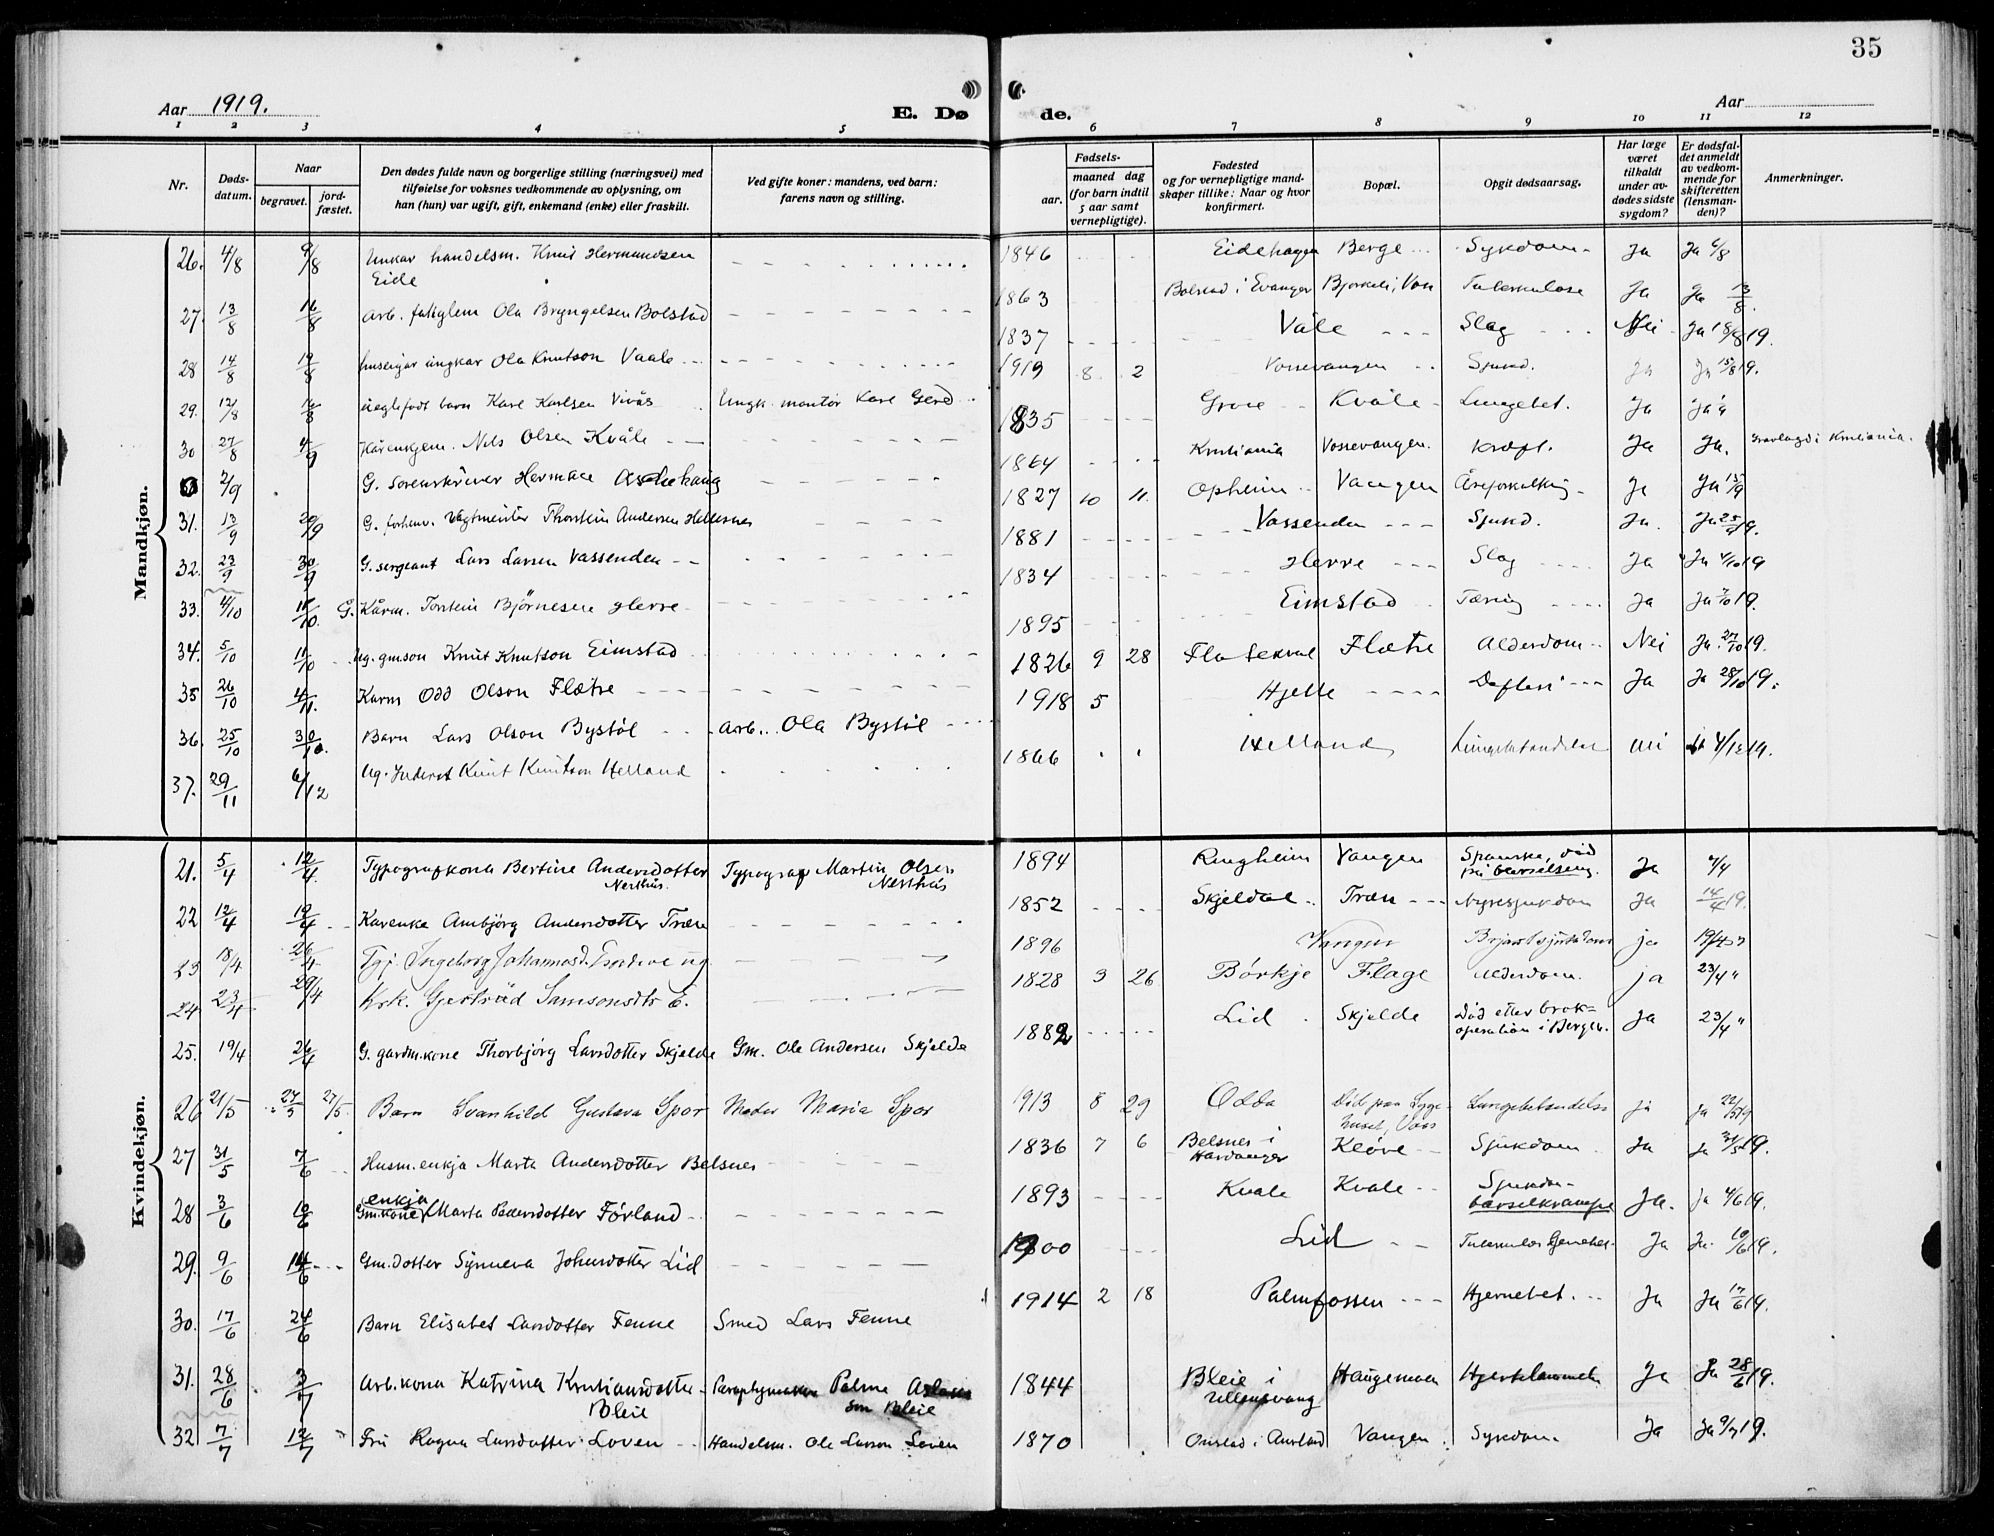 35
Aar 1919.
E. Dø de.
Aar
1 2 3 4 5 6 7 8 9 10 11 12
Nr.
Døds-
datum.
Naar
begravet.
jord-
fæstet.
Den dødes fulde navn og borgerlige stilling (næringsvei) med
tilføielse for voksnes vedkommende av oplysning, om
han (hun) var ugift, gift, enkemand (enke) eller fraskilt.
Ved gifte koner: mandens, ved barn:
farens navn og stilling.
Fødsels-
aar.
maaned dag
(for barn indtil
5 aar samt
vernepligtige).
Fødested
og for vernepligtige mand-
skaper tillike: Naar og hvor
konfirmert.
Bopæl.
Opgit dødsaarsag.
Har læge
været
tilkaldt
under av-
dødes sidste
sygdom?
Er dødsfal-
det anmeldt
av vedkom-
mende for
skifteretten
(lensman-
den)?
Anmerkninger.
Mandkjøn.
26. 4/8 9/8 Unkar handelsm. Knut Hermundsen
Eide
1846 Eidehagen Berge Sykdom Ja Ja 6/8
27. 13/8 16/8 Arb. fatiglem Ola Bryngelsen Bolstad
1863 Bolstad i Evanger Bjørkeli, Voss Tuberkulose Ja Ja 13/8.
28 14/8 19/8 huseigar ungkar Ola Knutson Vaale
1837 Våle Slag Nei Ja 18/8 19.
29. 12/8 16/8 uegtefødt barn Kare Karlsen Vivås Ungk. montør Kare Gerd
1919 8 2 Vossevangen Sjukd. Ja Ja 15/8 19.
30 27/8 4/9 Kårenkjem. Nils Olsen Kvåle
1835 Grove Kvåle Lungebet. Ja Ja
2/9 G. Sorenskriver Herman Aschehaug
1864 Kristiania Vossevangen. Kræft. Ja Ja. Gravlagd i Kristiania.
31. 13/9 20/9 G. forhenv. Vagtmeister Thorstein Andersen Hellesnes
1827 10 11. Opheim Vangen Åreforkalkning Ja Ja 15/9
32. 23/9 30/9 G. sergeant Lars Larsen Vassenden
1881 Vassenden Sjukd. Ja. Ja 25/9 19.
33. 4/10 11/10. G. Kårm. Torstein Bjørnesen Herre
1834 Herre Slag Ja Ja 4/10 19
34. 5/10 11/10 Ug. gmson Knut Knutson Eimstad
1895 Eimstad Tæring Ja Ja 7/10 19.
35 26/10 4/11. Karm Odd Olson Flætre
1826 9 28 Flatekval Flætre Alderdom Nei Ja 27/10 19.
36. 25/10 30/10. Barn Lars Olson Bystøl Arb. Ola Bystøl
1918 5 Hjelle Defteri Ja Ja 28/10 19.
37. 29/11 6/12 Ug. Inderst Knut Knutson Helland
1866 Helland Lungebetændelse nei Ja 4/12 19.
Kvindekjøn.
21. 5/4 12/4. Typografkona Bertine Andersdotter
Nesthus.
Typograf Martin Olsen
Nesthus
1894 Ringheim Vangen Spanske, død
på barselseng. Ja 7/4
22 12/4 19/4 Karenke Ambjørg Andersdotter Træn
1852 Skjeldal Træn Nyresjukdom Ja 14/4 19.
23 18/4 26/4 Tgj. Ingeborg Johannesd. ug
1896 Vangen Brjøstsjukdom ja 19/4 "
24 23/4 29/4 Krk. Gjertrud Samsonsdtr E.
1828 3 26 Børkje Flage Alderdom. ja 23/4 "
25. 19/4 26/4 G. gardm.kone Thorbjørg Larsdotter Skjelde Gm. Ole Andersen Skjelde
1882 Lid Skjelde Død etter brok-
operation i Bergen. Ja 23/4 "
26 21/5 27/5 27/5. Barn Svanhild Gustava Spor Moder Maria Spor
1913 8 29 Odda Død paa Syge-
huset, Voss Lungebetændelse ja Ja 22/5 19
27 31/5 7/6 Husm.enkja Marta Andersdotter Belsnes
1836 7 6 Belsnes i
Hardanger Kløve Sjukdom Ja Ja 31/5 19.
28 3/6 10/6 enkja
Gm.kone Marta Pedersdotter Førland
1893 Kvale Kvale Sjukdom
barselkrampe Ja. Ja 4/6 19.
29. 9/6 14/6 Gm.dotter Synneva Johnsdotter Lid
1900 Lid Tuberkuløs Hjernebet. Ja Ja 10/6 19.
30. 17/6 24/6 Barn Elisabet Larsdotter Fenne Smed Lars Fenne
1914 2 18 Palmfossen Hjernebet. Ja Ja 17/6 19.
31. 28/6 3/7 Arb.kona Katrina Kristiansdotter
Bleie
Paraplymaker Palme Aslaks
son Bleie
1844 Bleie i
Ullensvang Haugemoen Hjertelammelse Ja Ja 28/6 19.
32 7/7 12/7 Fru Ragna Larsdotter Loven Handelsm. Ole Larson Loven
1870 Onstad i Aurland Vangen Sykdom. Ja Ja 9/7 19.